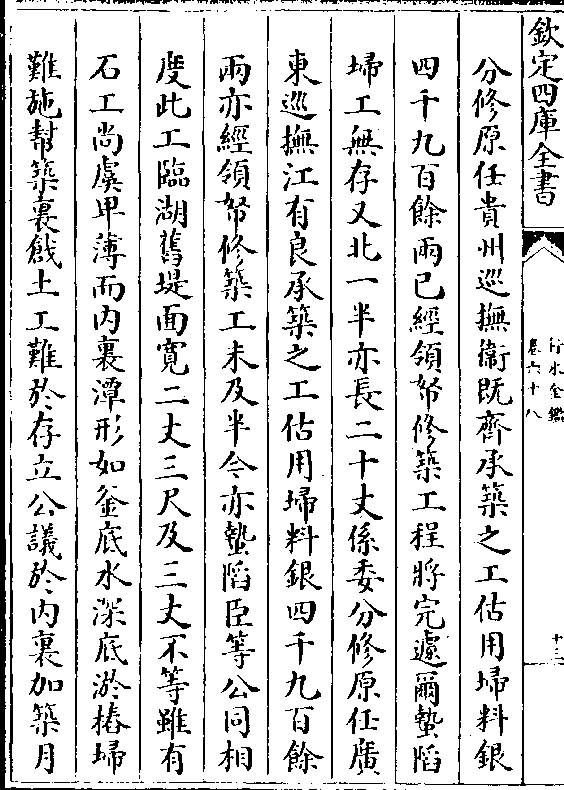 欽定四庫全書
行水金鑑
卷六十八
十三
分修原任貴州巡撫衛既齊承築之工估用埽料銀
四千九百餘兩已經領帑修築工程將完遽爾蟄䧟
埽工無存又北一半亦長二十丈係委分修原任廣
東巡撫江有良承築之工估用埽料銀四千九百餘
兩亦經領帑修築工未及半今亦蟄䧟臣等公同相
度此工臨湖舊堤面寛二丈三尺及三丈不等雖有
石工尚虞卑薄而内裏潭形如釜底水深底淤椿埽
難施幫築裏戧土工難於存立公議於内裏加築月